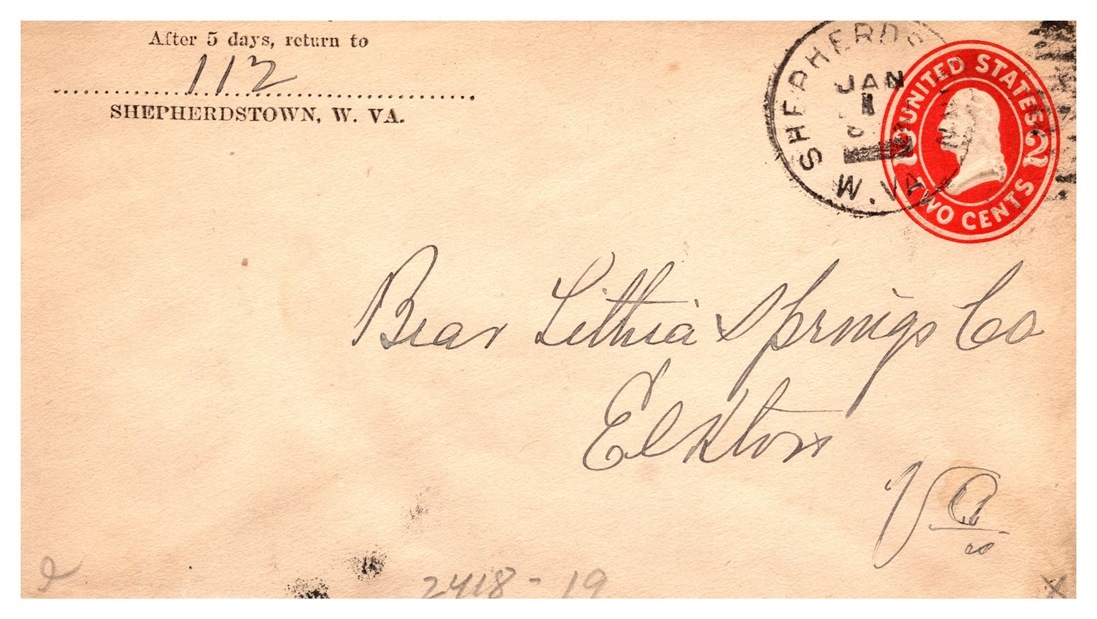 After 5 days, return to
112
SHEPHERDSTOWN, W. VA.
SHEPHERDS
W. VA
JAN
1
UNITED STATES
2 2
TWO CENTS
Bear Lithia Springs Co
Elkton
Va
2418-19
x